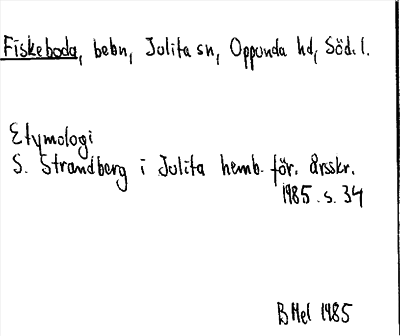 Fiskeboda, bebn, Julita sn, Oppunda hd, Söd. l.
Etymologi
S. Strandberg i Julita hemb. för. årsskr.
1985. s. 34
B Mel 1985